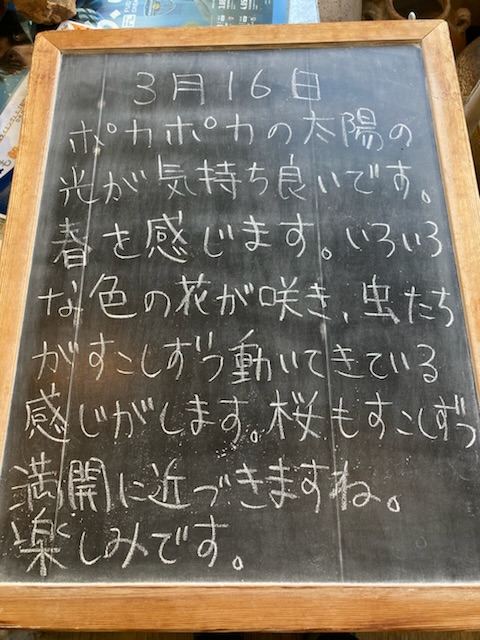 3月16日
ポカポカの太陽の
光が気持ち良いです。
春を感じます。いろいろ
な色の花が咲き、虫たち
がすこしずつ動いてきている
感じがします。桜もすこしずつ
満開に近づきますね。
楽しみです。